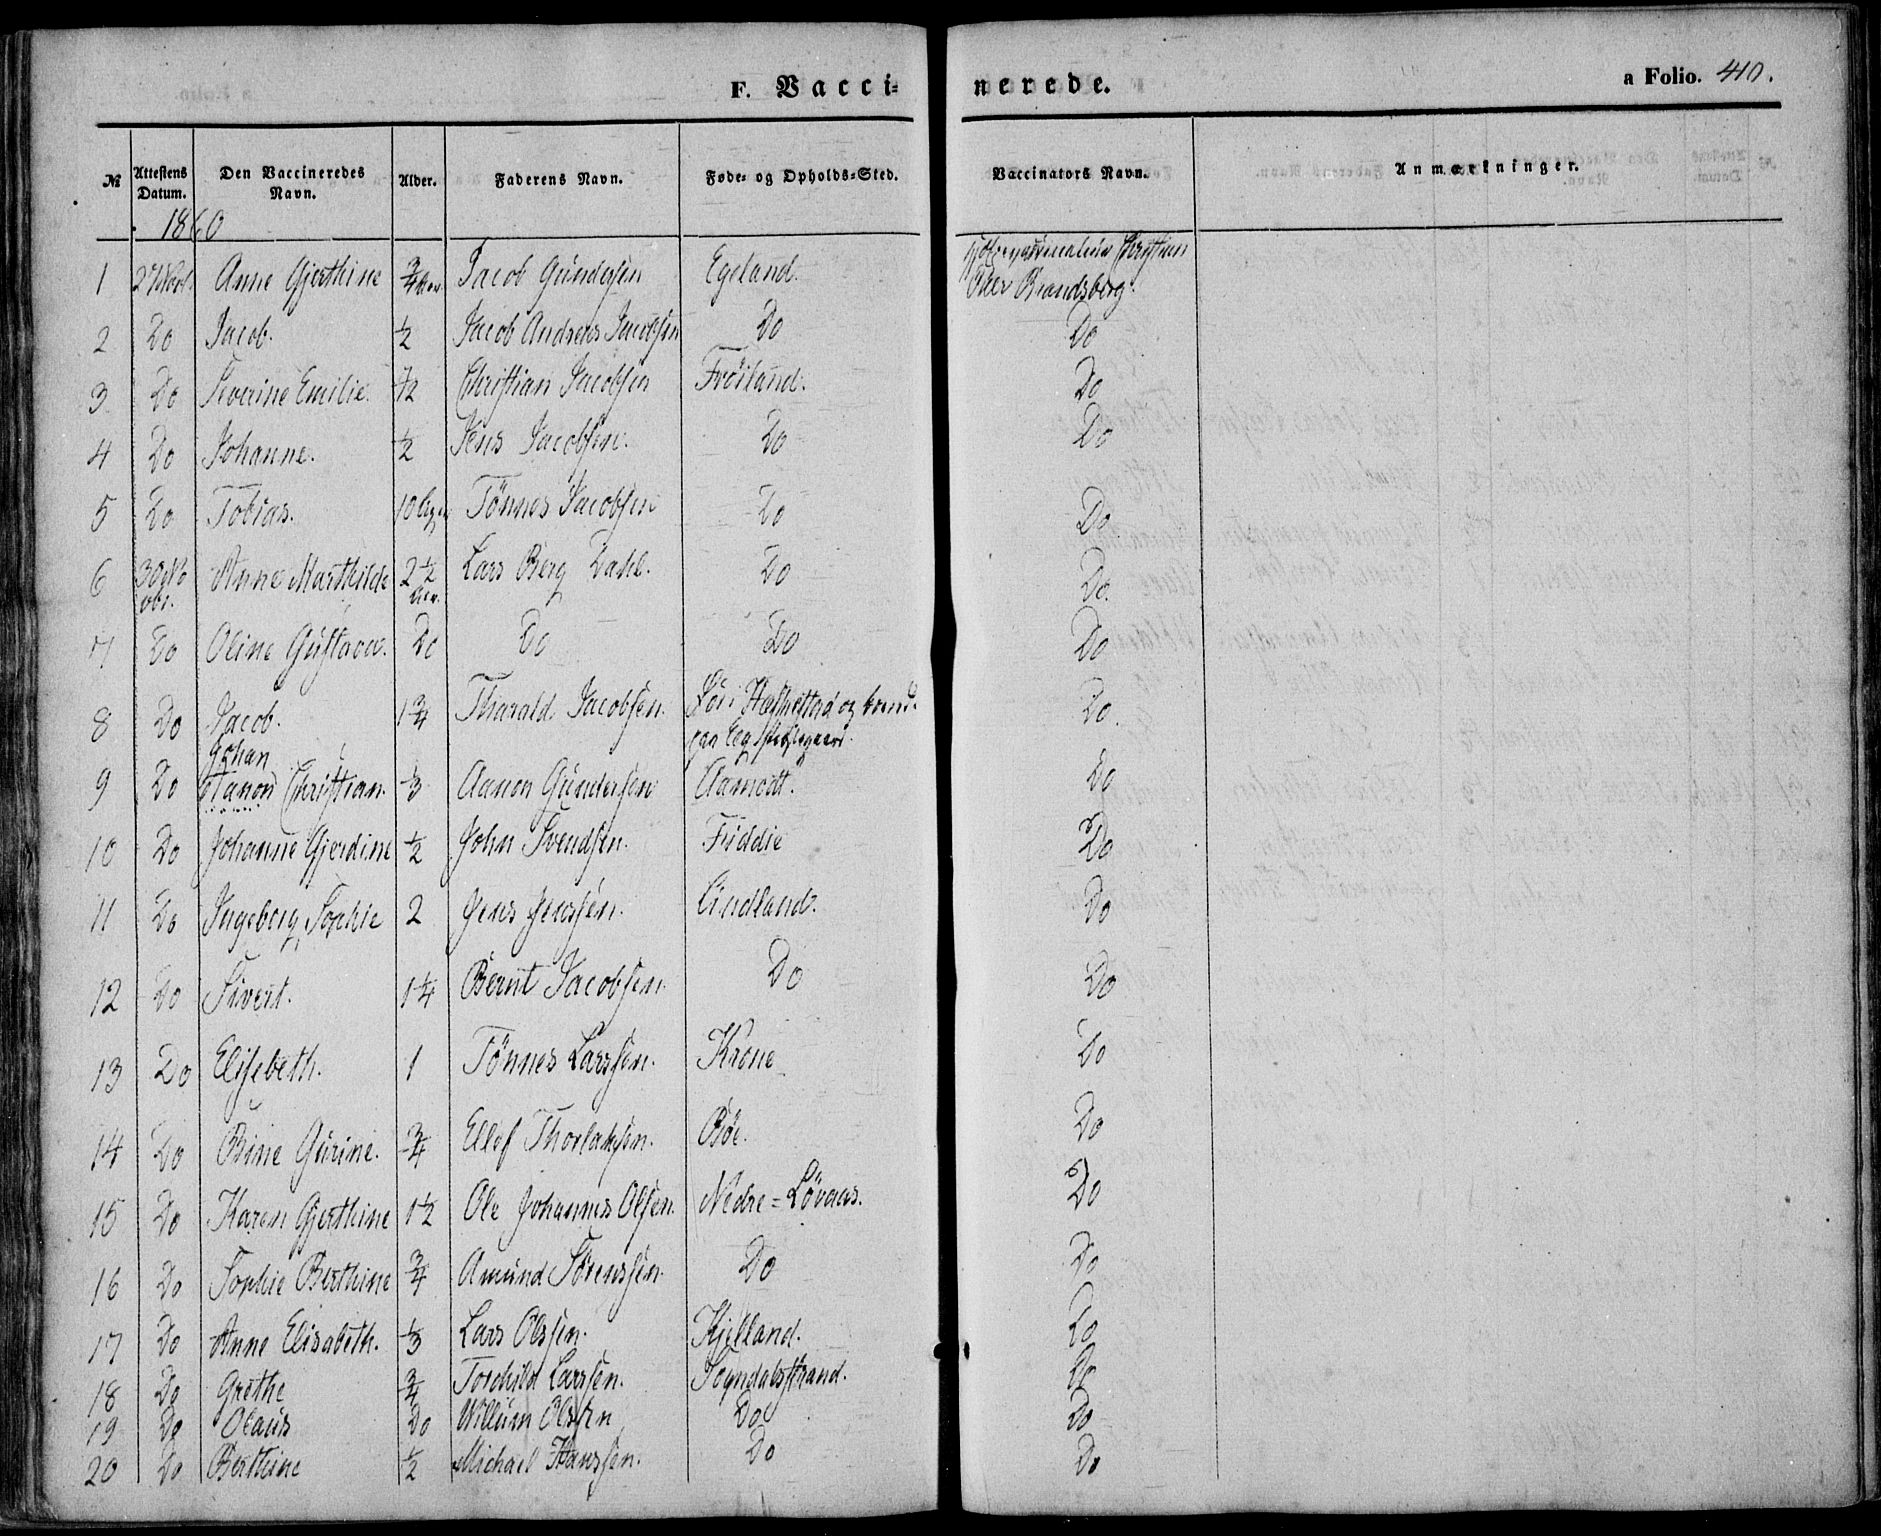 F. Vaccinerede. a Folio. 410.
№ | Attestens Datum. | Den Vaccineredes Navn. | Alder. | Faderens Navn. | Føde- og Opholds-Sted. | Vaccinators Navn. | Anmærkninger.
1860
1 | 27 | Anne Gjerthine | 3/4 | Jacob Gundersen | Egeland. | Christian Brandsberg.
2 | Do | Jacob. | 1/2 | Jacob Andreas Jacobsen | Do | Do
3 | Do | Severine Emilie. | 1/2 | Christian Jacobsen | Frøiland. | Do
4 | Do | Johanne. | 1/2 | Jens Jacobsen. | Do | Do
5 | Do | Tobias. | 10 | Tönnes Jacobsen | Do | Do
6 | 30 | Anne Marthilde | 2 1/2 | Lars Berg Dahl. | Do | Do.
7 | Do | Oline Gustava. | Do | Do | Do | Do
8 | Do | Jacob. | 1 3/4 | Tharald Jacobsen. | og | Do.
paa Eeg
Johan
9 | Do | Aanon Christian. | 1/3 | Aanon Gundersen | Aamodt. | Do
10 | Do | Johanne Gjerdine | 1/2 | John Svendsen. | Fiddie | Do
11 | Do | Ingeborg Sophie | 2 | Jens Jenssen. | Lindland. | Do
12 | Do | Sivert. | 1 1/4 | Bernt Jacobsen. | Do | Do
13 | Do | Elisebeth. | 1 | Tönnes Larssen. | Krone | Do
14 | Do | Bine Gurine. | 3/4 | Ellef Thorlaksen. | Bøe. | Do
15 | Do | Karen Gjerthine | 1 1/2 | Ole Johannes Olsen. | Nedre=Lövaas. | Do
16 | Do | Sophie Berthine | 3/4 | Amund Sørenssen. | Do | Do
17 | Do | Anne Elisabeth. | 1/3 | Lars Olssen. | Kjelland. | Do
18 | Do | Grethe | 3/4 | Torchild Larssen. | Sogndalsstrand. | Do
19 | Do | Olaus | Do | Willum Olssen | Do | Do
20 | Do | Berthine | 1/2 | Michael Hanssen. | Do | Do